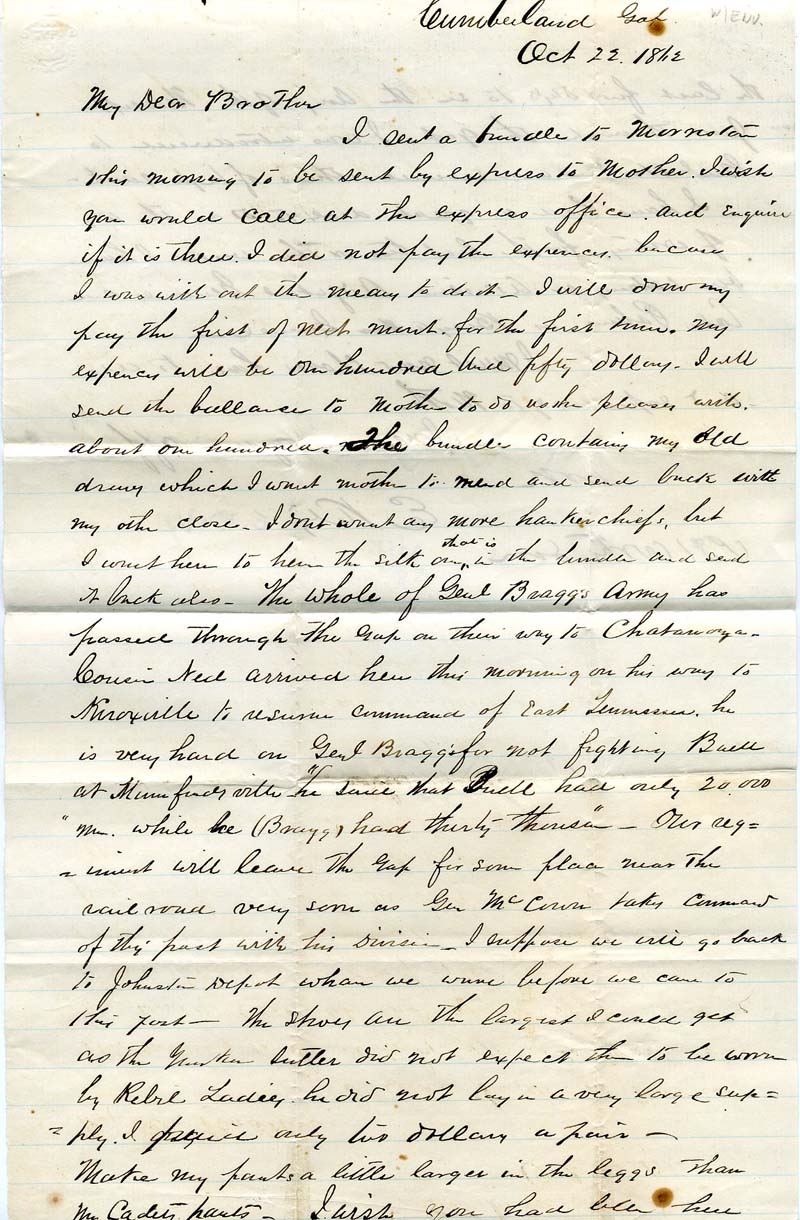 W/ENV.
Cumberland Gap
Oct 22. 1862
My Dear Brother
I sent a bundle to Morriston
this morning to be sent by express to Mother. I wish
you would call at the express office. and enquire
if it is there. I did not pay the expences. because
I was with out the means to do it – I will draw my
pay the first of next mont. for the first time. My
expences will be one hundred and fifty dollars. I will
send the ballance to Mother to do as she pleases with.
about one hundred. The bundle contains my old
drawers which I want mother to mend and send back with
my other close – I dont want any more hankerchiefs, but
I want her to hem the silk one that is in the bundle and send
it back also – The whole of Genl Braggs Army has
passed through the Gap on their way to Chatanooga –
Cousin Ned arrived here this morning on his way to
Knoxville to resume command of East Tennessee. he
is very hard on Genl Braggs for not fighting Buell
at Munfordsville "he said that Buell had only 20.000
"Men. while he (Bragg) had thirty thousan" – Our reg=
=iment will leave the Gap for som place near the
rail road very soon as Gen McCown takes command
of this post with his Division – I suppose we will go back
to Johnston Depot whare we were before we came to
this post – The shoes are the largest I could get
as the Yankee Sutler did not expect them to be worn
by Rebel Ladies. he did not lay in a very large sup=
=ply. I paid only two dollars a pair –
Make my pants a little larger in the leggs than
my Cadets pants – I wish you had been here